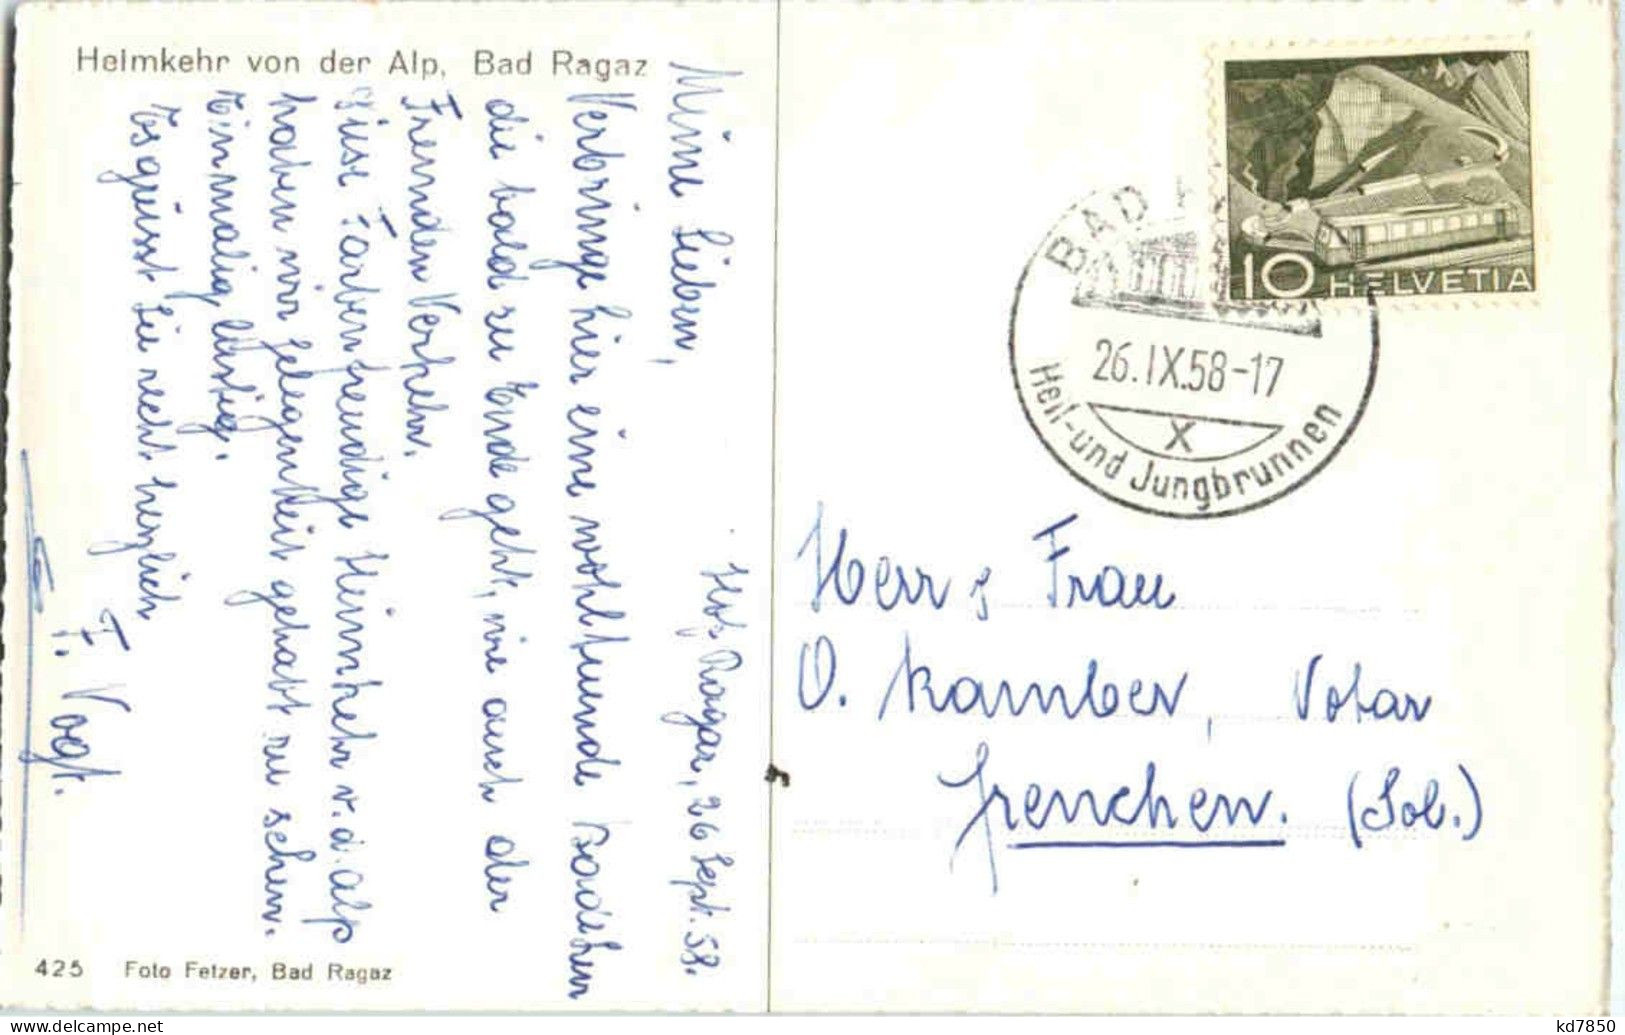 Heimkehr von der Alp, Bad Ragaz
Hof Ragaz, 26 Sept. 58.
Meine Lieben,
Verbringe hier eine wohltuende Badekur
die bald zu Ende geht, wie auch der
Fremden Verkehr.
Diese Farbenfreudige Heimkehr v. d. Alp
haben wir Gelegenheit gehabt zu sehen.
Einmalig lustig.
Es grüsst Sie recht herzlich
F. Vogt.
425 Foto Fetzer, Bad Ragaz
10 HELVETIA
BAD
26.IX.58-17
X
Heil-und Jungbrunnen
Herr & Frau
O. Kamber, Notar
Grenchen. (Sol.)
kd7850